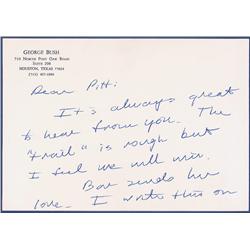 GEORGE BUSH
710 NORTH POST OAK ROAD
SUITE 208
HOUSTON, TEXAS 77024
(713) 467-1980
Dear Pitti
It's always great
to hear from you. The
"trail" is rough but
I feel we will win.
Bar sends her
love. I wrote this on